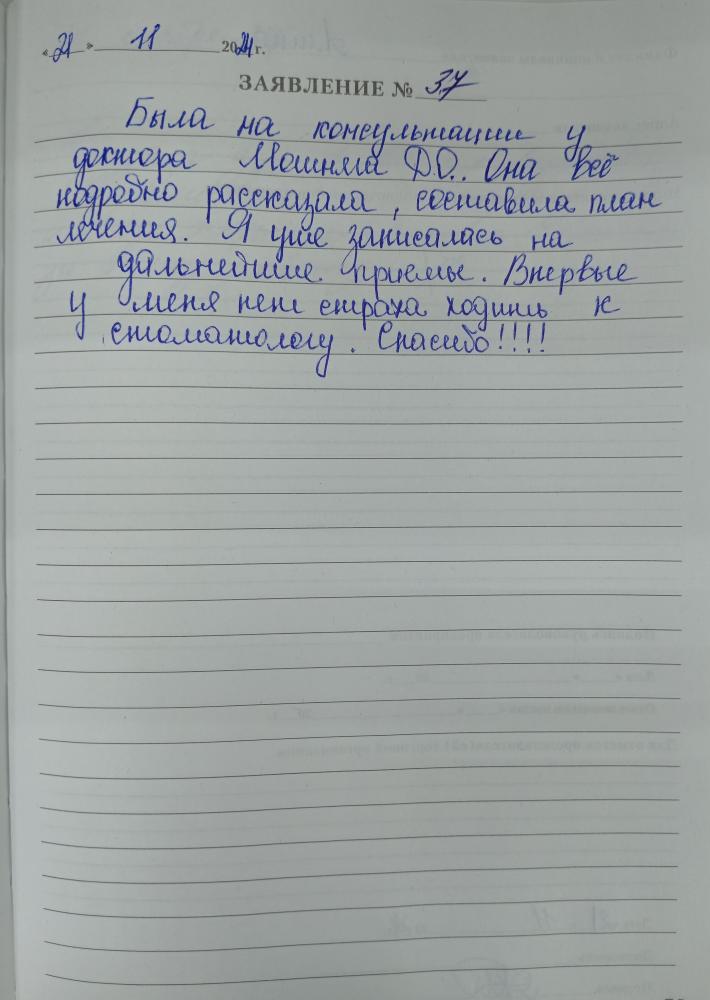 «21» 11 2024 г.
ЗАЯВЛЕНИЕ № 37
Была на консультации у
доктора Д.О.. Она всё
подробно рассказала, составила план
лечения. Я уже записалась на
дальнейшие приемы. Впервые
у меня нет страха ходить к
стоматологу. Спасибо!!!!